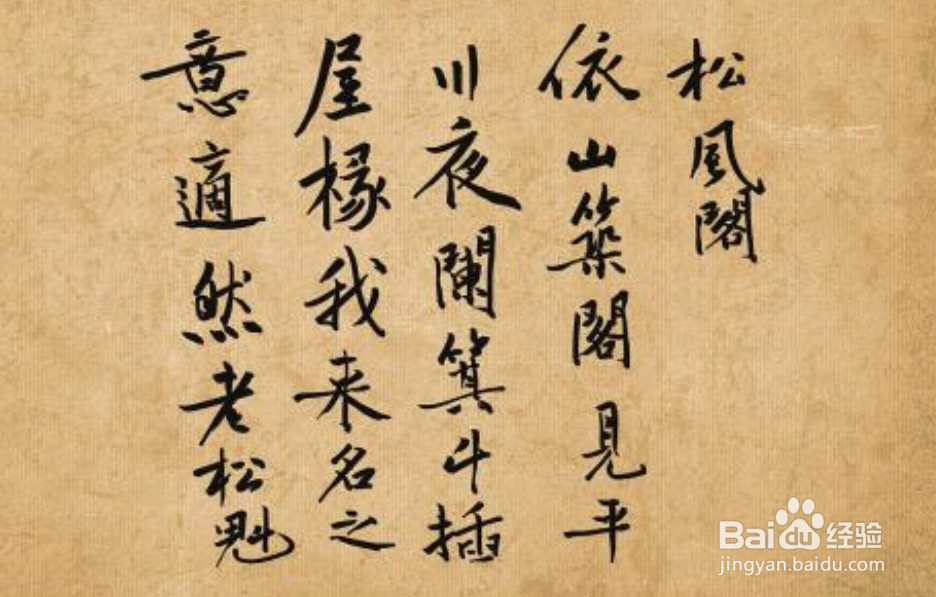 松風閣
依山築閣見平
川夜闌箕斗插
屋椽我来名之
意適然老松魁
Baidu经验
jingyan.baidu.com